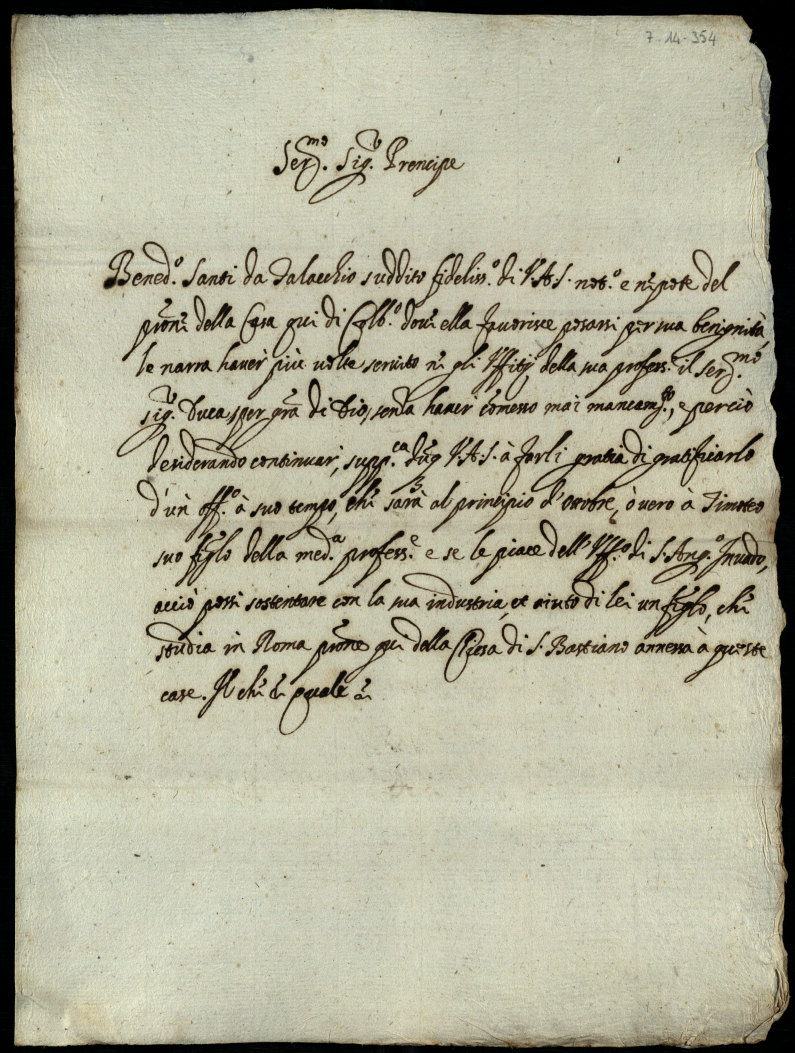 7-14-354
Ser.mo Sig.r Prencipe
Bened.o Santi da Talacchio suddito fideliss.o di V.A.S. not.o e nipote del
della Casa qui di Colb.o dove ella favorisce posarsi per sua benignità,
le narra haver più volte servito nè gli Uffitij della sua profess.e il Ser.mo
Sig.r Duca, per gr̃a di Dio, senza haver com̃esso mai mancam.to, e perciò
desiderando continuar, supp.ca V.A.S. à farli gratia di gratificarlo
d'un off.o à suo tempo, che sarà al principio d'ottobre, ò vero à Timoteo
suo figlo della med.a profess.e e se le piace dell'Uff.o di S. Ang.o Invado,
acciò possi sostentare con la sua industria, et aiuto di lei un figlo, che
studia in Roma qui della Chiesa di S. Bastiano annessa à queste
case. Il che